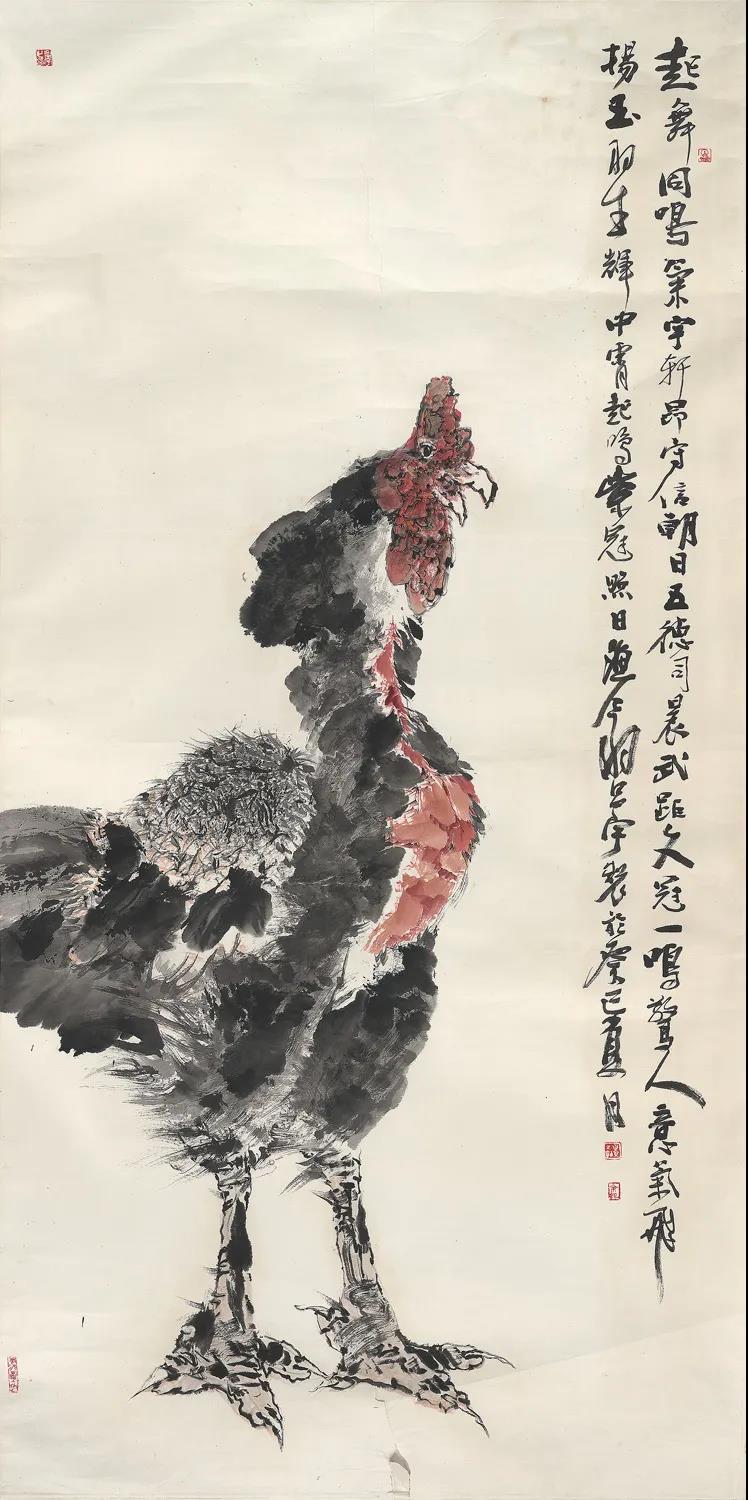 起舞同鳴氣宇軒昂守信朝日五德司晨武距文冠一鳴驚人意氣飛
揚玉羽生輝中宵起鳴紫冠照日於癸巳夏月